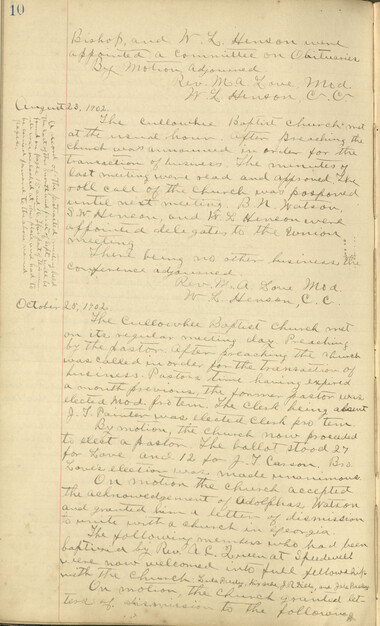 10
Bishop, and W. L. Henson were
appointed a Committee on Obituaries
By Motion Adjourned
Rev. M. A. Love Mod.
W. L. Henson, C. C.
August 23, 1902
The Cullowhee Baptist Church met
at the usual hour. After Preaching the
church was announced in order for the
transaction of business. The minutes of
last meeting were read and approved. The
roll call of the church was posponed
until next meeting. B. N. Watson,
S. W. Henson, and W. L. Henson were
appointed delegates to the Union
meeting
There being no other business the
conference adjourned
Rev. M. A. Love Mod
W. L. Henson, C. C.
October 28, 1902
The Cullowhee Baptist Church met
on its regular meeting day. Preaching
by the pastor. After preaching the church
was called in order for the transaction of
business. Pastors time having expired
a month previous, the former pastor was
elected Mod. pro tem. The Clerk being absent
J. T. Painter was elected Clerk pro tem
By motion, the church now proceeded
to elect a pastor. The ballot stood 27
for Love and 12 for J. T. Carson. Bro
Love's election was made unanimous.
On motion the church accepted
the acknowledgement of Adolphas Watson
and granted him a letter of dismission
to unite with a church in Georgia.
The following members who had been
baptized by Rev. A. C. Queen at Speedwell
were now welcomed into full fellowship
with the church:
On motion, the church granted let-
ters of dismission to the following